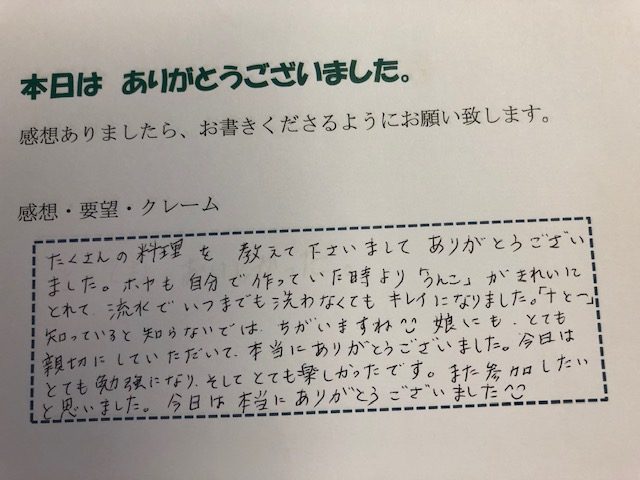 本日は ありがとうございました。
感想ありましたら、お書きくださるようにお願い致します。
感想・要望・クレーム
たくさんの料理を 教えて下さいまして ありがとうござい
ました。ホヤも自分で作っていた時より「うんこ」がきれいに
とれて、流水でいつまでも洗わなくてもキレイになりました。
知っていると知らないでは、ちがいますね 娘にも、とても
親切にしていただいて、本当にありがとうございました。今日は
とても勉強になり、そしてとても楽しかったです。また参加したい
と思いました。今日は本当にありがとうございました